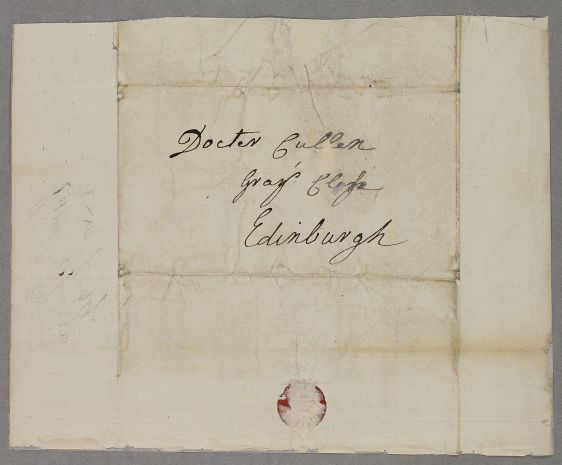 Docter Cullen
Gray's Close
Edinburgh